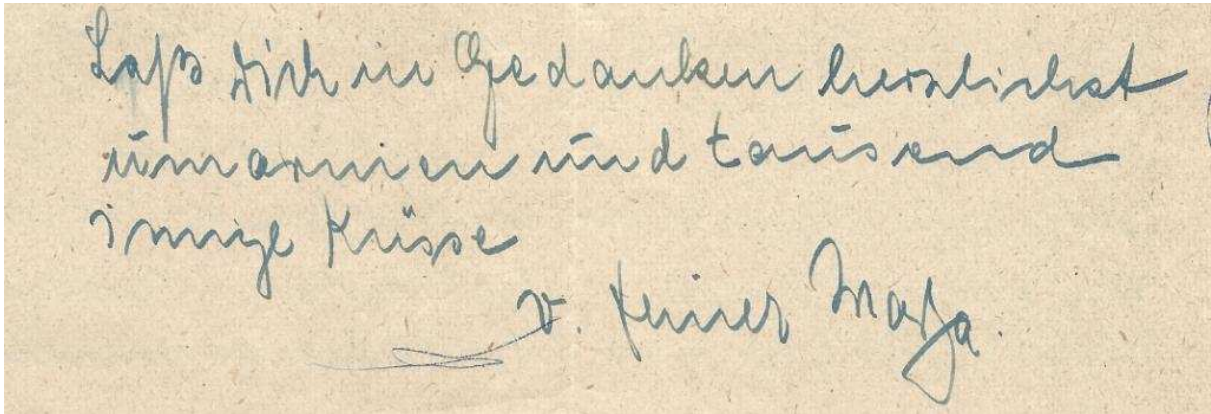 Laß Dich in Gedanken herzlichst
umarmen und tausend
innige Küsse
v. Deiner Marja.